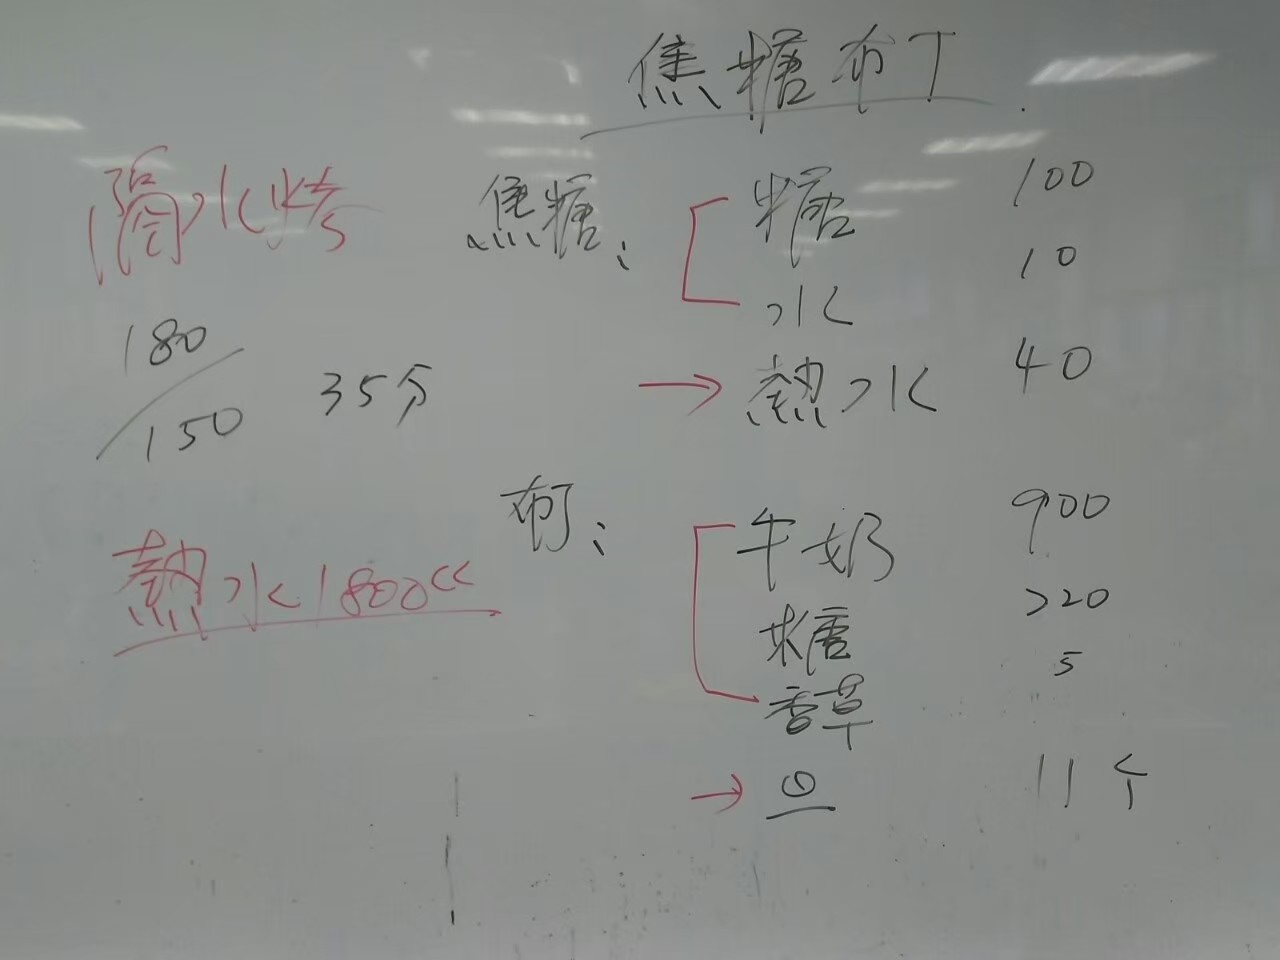 焦糖布丁
隔水烤
焦糖: 糖 100
水 10
→ 熱水 40
180/150 35分
布丁: 牛奶 900
糖 220
香草 5
熱水1800cc
→ 旦 11个